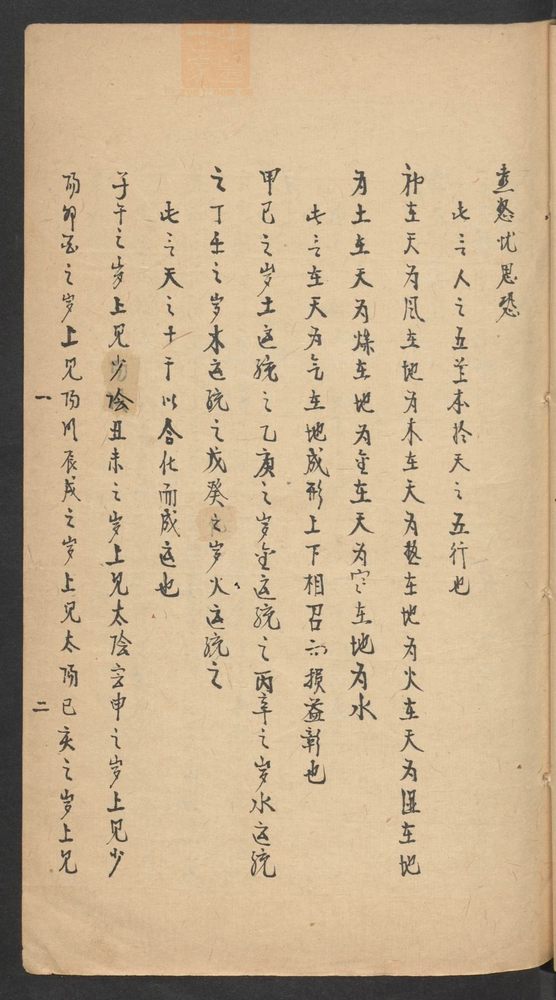 喜怒忧思恐
此言人之五本於天之五行也
神在天为风在地为木在天为热在地为火在天为湿在地
为土在天为燥在地为金在天为寒在地为水
此言在天为气在地成形上下相召而损益彰也
甲已之岁土运统之乙庚之岁金运统之丙辛之岁水运统
之丁壬之岁木运统之戊癸之岁火运统之
此言天之十干以合化而成运也
子午之岁上见少陰丑未之岁上见太陰寅申之岁上见少
阳卯酉之岁上见阳明辰戌之岁上见太阳巳亥之岁上见
一
二